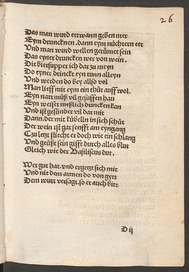 26
Das man wurd ettwann geben mer
Eyn druncknen, dann eym nüchteren eer
Vnd man wurd wellen gerümet sein
Das eyner druncken wer von wein
Die biersupper ich dar zu meyn
Do eyner drinckt eyn tunn alleyn
Vnd werden do bey allso vol
Man lieff mit eym ein thür auff wol
Eyn narr muß vil gesoffen han
Eyn weiser meßlich drincken kan
Vnd ist gesünder vil dar mit
Dann, der mit küblen in sich schüt
Der wein ist gar senfft am eyngang
Zu letst sticht er doch wie ein schlang
Vnd güßt sein gifft durch alles blut
Gleich wie der Basiliscus dut.
Wer gut hat, vnd ergetzt sich mit
Vnd nit dem armen do von gitt
Dem wurt versagt, so er auch bitt
D ij